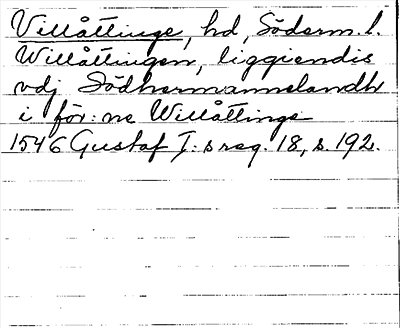 Villåttinge, hd, Söderm. l.
Willåttingen, liggiendis
vdj Södhermannelandh
i för: ne Willåttinge
1546 Gustaf I:s reg. 18, s. 192.